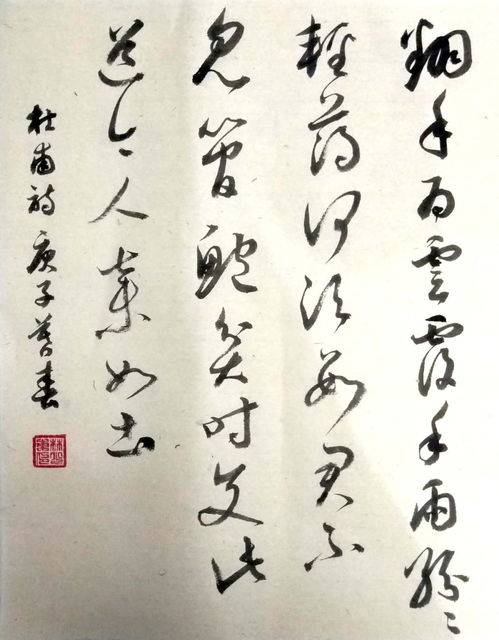 翻手为雲覆手雨紛〻
輕薄何須數君不
見管鮑貧时交此
道今人棄如土
杜甫詩庚子暮春